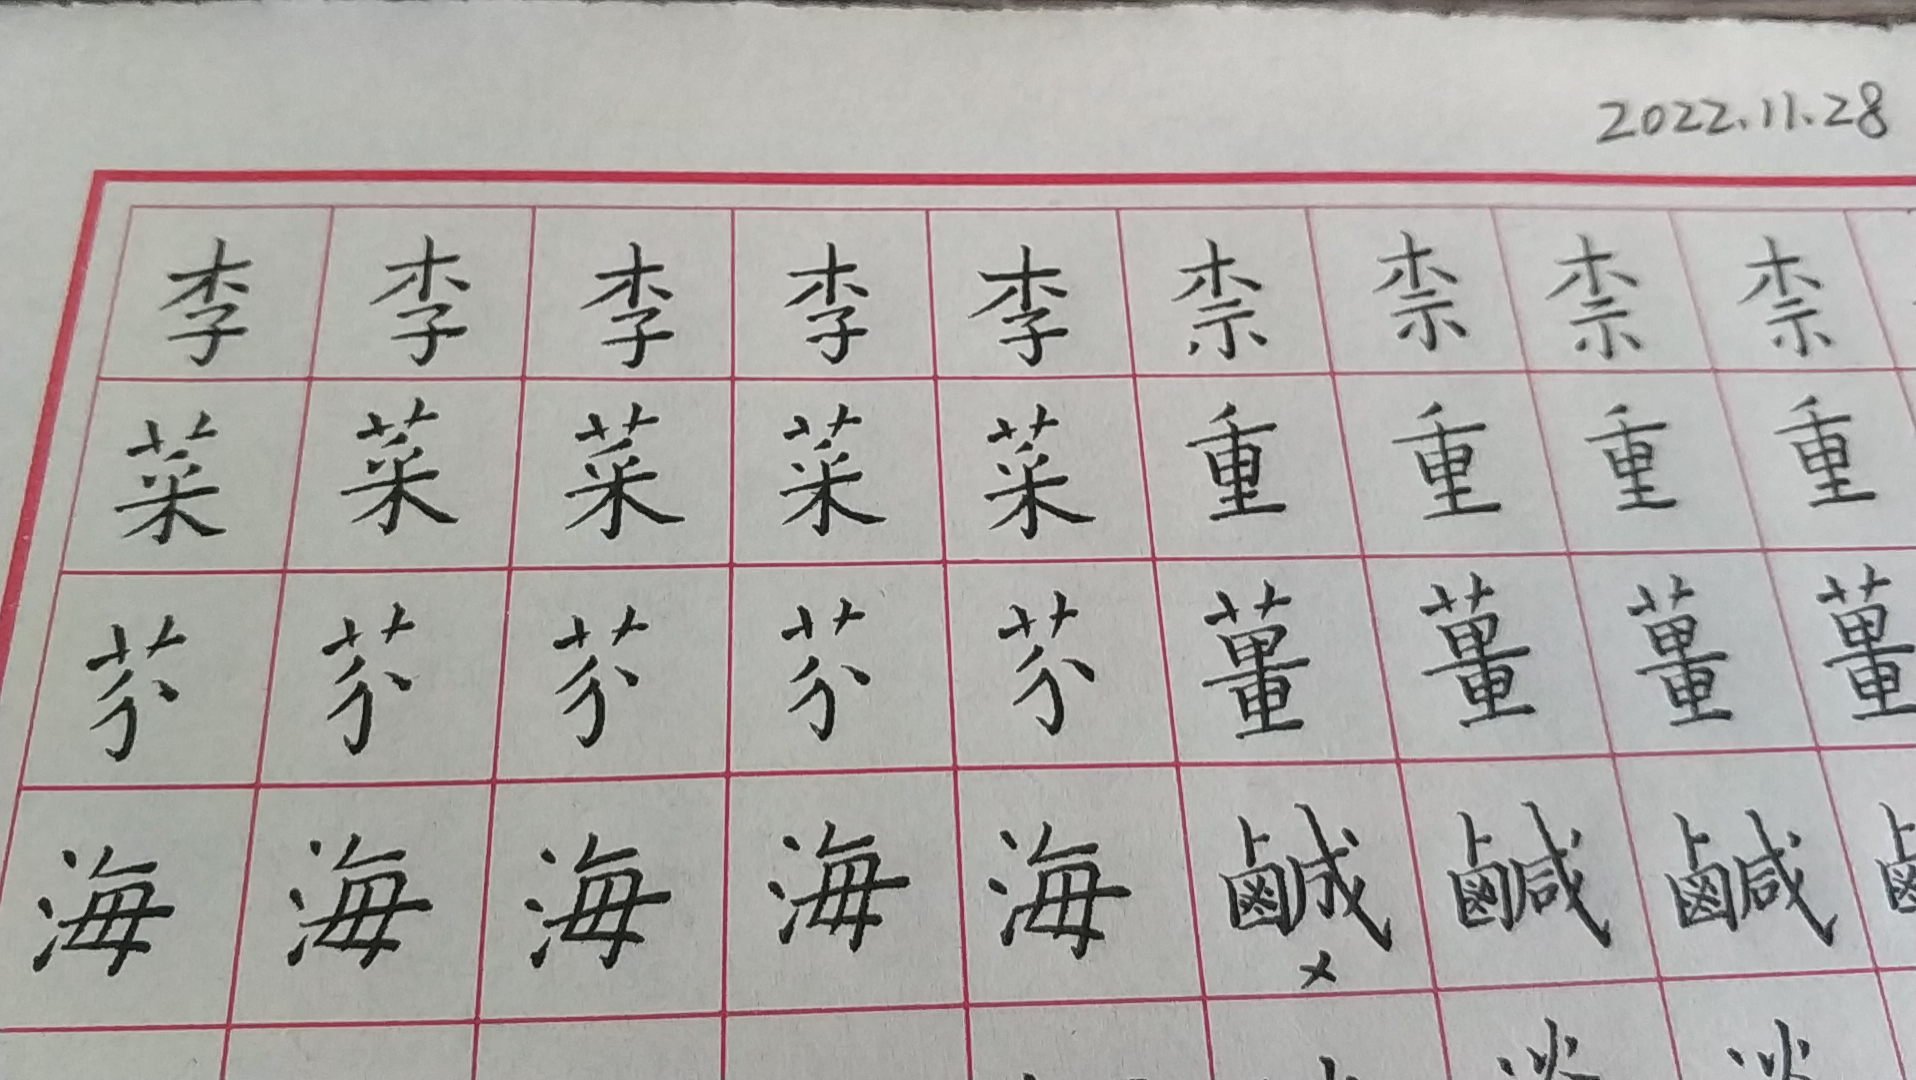 2022.11.28
李李李李李柰柰柰柰
菜菜菜菜菜重重重重
芥芥芥芥芥薑薑薑薑
海海海海海鹹鹹鹹
×